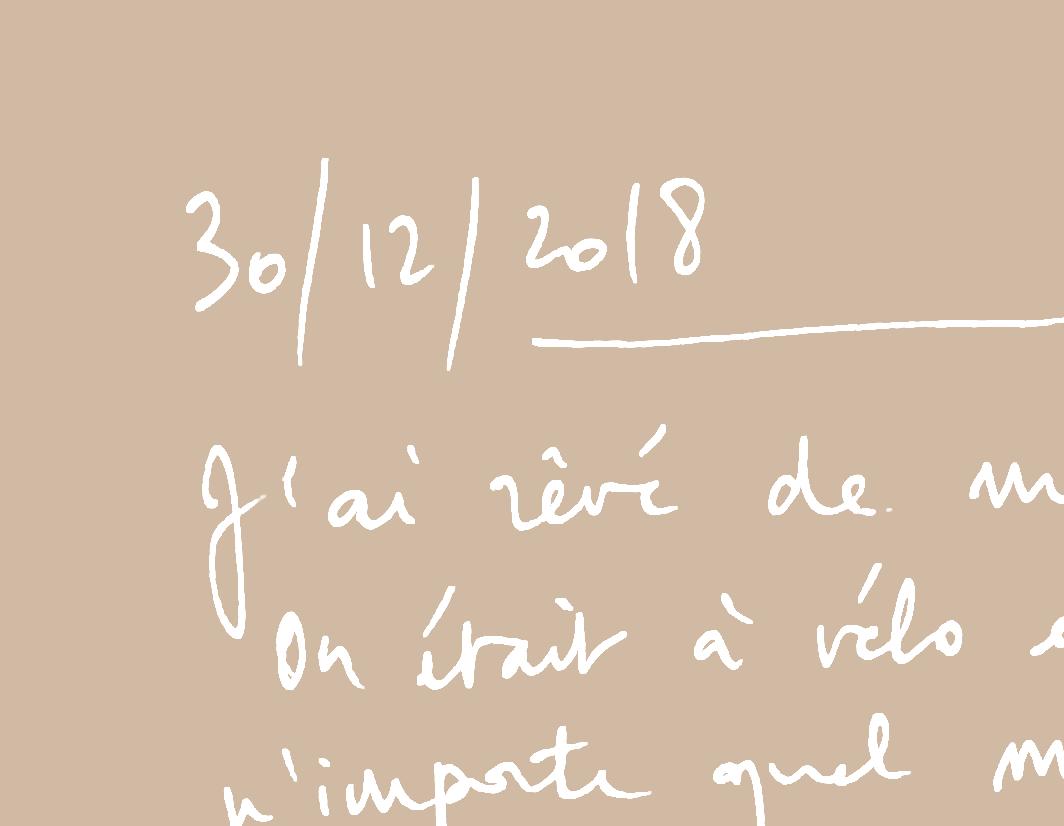 30/12/2018
J'ai rêvé de
On était à vélo
n'importe quel